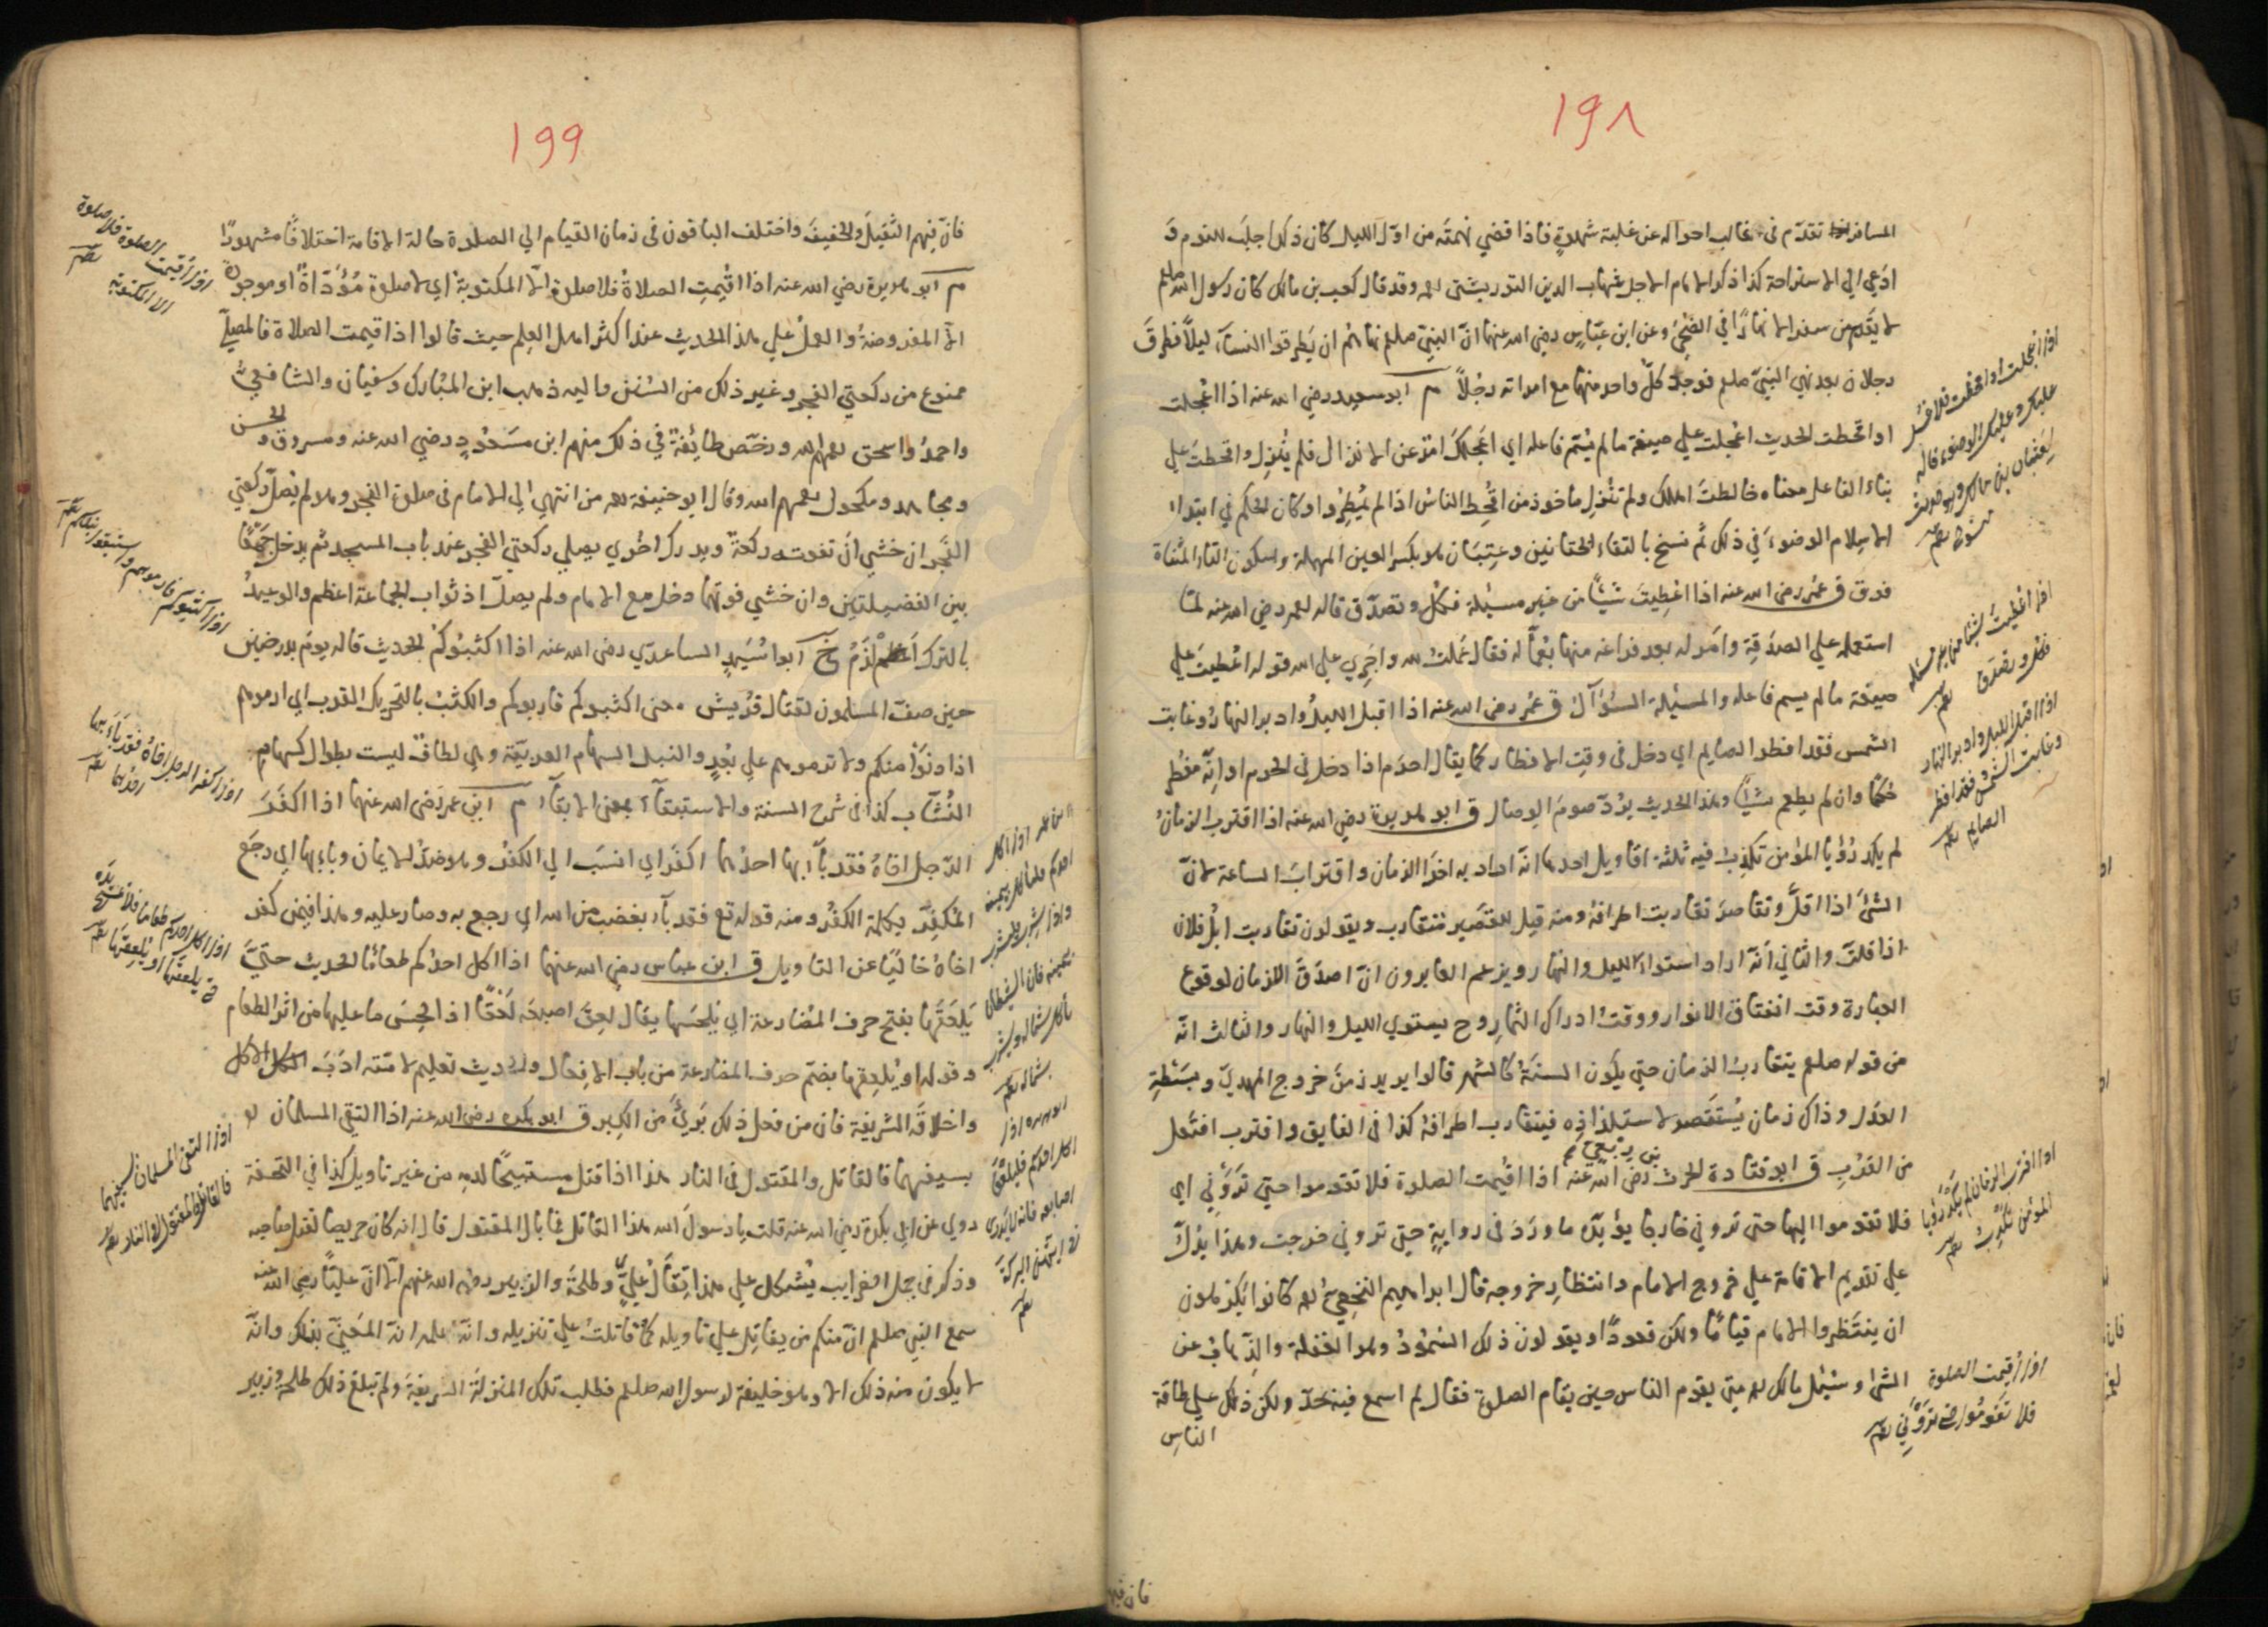 ١٩٨
المسافر تقدم فى غالب احواله عن غلبة شهوةٍ فاذا قضي نهمته من اول الليل كان ذلك اجلب للنوم و
ادعي الي الاستراحة كذا ذكر الامام الاجل شهاب الدين التوربشتى وقد قال كعب بن مالك كان رسول الله صلعم
لا يقدم من سفر الا نهارًا في الضحى وعن ابن عبّاسٍ رضي الله عنهما انّ النبيّ صلعم نهاهم ان يَطرقوا النسآء ليلاً فطرق
رجلان بعد نهي النبيّ صلعم فوجد كلّ واحد منهما مع امراته رجُلاً م ابو سعيد رضي الله عنه اذا اعجلت
او اقحطت الحديث اعجلت علي صيغة ما لم يُسَمّ فاعله اي اعجلك امرٌ عن الانزال فلم يُنزل واقحطت علي
بناء الفاعل معناه خالطت اهلك ولم تنزل ماخوذ من اقحط الناس اذا لم يُمطروا وكان الحكم في ابتداء
الاسلام الوضوءَ في ذلك ثم نسخ بالتقاء الختانين وعِتبَان هو بكسر العين المهملة وسكون التاء المثناة
فوق ق عمر رضى الله عنه اذا اعْطِيتَ شيئًا من غير مسئلة فكل وتصدّق قاله لعمر رضي الله عنه لمّا
استعمله علي الصدقة وامر له بعد فراغه منها بعمالة فقال عملت لله واجري علي الله قوله اعْطيتَ علي
صيغة ما لم يسم فاعله والمسئلة السؤآل ق عمر رضى الله عنه اذا اقبل الليل وادبر النهار وغابت
الشمس فقد افطر الصايم اي دخل في وقت الافطار كما يقال احرم اذا دخل فى الحرم او انّه مفطر
حكمًا وان لم يطعم شيئًا وهذا الحديث يردّ صوم الوصال ق ابو هريرة رضي الله عنه اذا اقترب الزمان
لم يكد رؤيا المؤمن تكذب فيه ثلثة اقاويل احدها انّه اراد به اخر الزمان واقتراب الساعة لانّ
الشئ اذا قلّ وتقاصر تقاربت اطرافه ومنه قيل للقصير متقارب ويقولون تقاربت ابل فلان
اذا قلت والثاني انّه اراد استواء الليل والنهار ويزعم العابرون انّ اصدق الازمان لوقوع
العبارة وقت انفتاق الانوار ووقت ادراك الثمار وح يستوي الليل والنهار والثالث انّه
من قوله صلعم يتقارب الزمان حتي يكون السنة كالشهر قالوا يريد زمن خروج المهدي وبسطه
العدل وذاك زمان يُستقصر لاستلذاذه فيتقارب اطرافه كذا فى الفايق واقترب افتعل
من القرب ق ابو قتادة الحرث بن ربعي رضى الله عنه اذا اقيمت الصلوة فلا تقوموا حتي تروني اي
فلا تقوموا اليها حتى تروني خارجا يؤيده ما ورد فى روايةٍ حتي تروني خرجت وهذا يدل
علي تقديم الاقامة علي خروج الامام وانتظار خروجه قال ابراهيم النخعي كانوا يكرهون
ان ينتظروا الامام قيامًا ولكن قعودًا ويقولون ذلك السمود وهو الغفلة والذهاب عن
الشئ وسئل مالك متي يقوم الناس حين يقام الصلوة فقال لم اسمع فيه بحدّ ولكن ذلك علي طاقة
الناس
فان فيهم
اذا اعجلت او اقحطت فلا غسل
عليك وعليك الوضوء قاله
لعتبان بن مالك
اذا اعْطيتَ شيئا من غير مسئلة
فكل وتصدق
اذا اقبل الليل وادبر النهار
وغابت الشمس فقد افطر
الصايم
اذا اقترب الزمان لم يكد رؤيا
المؤمن تكذب
اذا اقيمت الصلوة
فلا تقوموا حتى تروني
١٩٩
فانّ فيهم الثقيل والخفيف واختلف الباقون فى زمان القيام الي الصلوة حالة الاقامة اختلافًا مشهورًا
م ابو هريرة رضي الله عنه اذا اقيمت الصلاة فلا صلوة الاّ المكتوبة اي لا صلوة مُؤَدّاةً او موجودة
الاّ المفروضة والعمل علي هذا الحديث عند اكثر اهل العلم حيث قالوا اذا اقيمت الصلاة فالمصلّي
ممنوع من ركعتي الفجر وغير ذلك من السنن واليه ذهب ابن المبارك وسفيان والشافعي
واحمد واسحق رحمهم الله ورخّص طايفة في ذلك منهم ابن مسعود رضي الله عنه ومسروق والحسن
ومجاهد ومكحول رحمهم الله وقال ابو حنيفة رحمه من انتهي الى الامام فى صلوة الفجر وهو لم يصلّ ركعتي
الفجر ان خشي ان تفوته ركعة ويدرك اخري يصلي ركعتي الفجر عند باب المسجد ثم يدخل جمعًا
بين الفضيلتين وان خشي فوتهما دخل مع الامام ولم يصلّ اذ ثواب الجماعة اعظم والوعيد
بالترك الزم خ ابو اُسَيد الساعدي رضى الله عنه اذا اكثبوكم الحديث قاله يوم بدر حين
حين صفّ المسلمون لقتال قريش معنى اكثبوكم قاربوكم والكثب بالتحريك القرب اي ارموهم
اذا دنوا منكم ولا ترموهم علي بُعدٍ والنبل السهام العربيّة وهي لطاف ليست بطوال كسهام
النُشّاب كذا فى شرح السنة والاستبقآء بمعنى الابقآء م ابن عمر رضى الله عنهما اذا اكفر
الرجل اخاه فقد بآء بها احدهما اكفر اي انسب الي الكفر وهو ضدّ الايمان وبآء بها اي رجع
المكفّر بكلمة الكفر ومنه قوله تع فقد بآء بغضب من الله اي رجع به وصار عليه وهذا فيمن كفر
اخاه خاليًا عن التاويل ق ابن عباس رضي الله عنهما اذا اكل احدكم طعامًا الحديث حتيّ
يَلعقها بفتح حرف المضارعة اي يلحسها يقال لعق اصبعه لَعْقًا اذا لحس ما عليها من اثر الطعام
وقوله او يُلعقها بضم حرف المضارعة من باب الافعال والحديث تعليم لامّته ادب الاكل
واخلاقه الشريفة فان من فعل ذلك بَرِئَ من الكبر ق ابو بكره رضى الله عنه اذا التقي المسلمان
بسيفهما فالقاتل والمقتول فى النار هذا اذا قتل مستبيحًا لدمه من غير تاويل كذا في التحفة
روي عن ابي بكرة رضي الله عنه قلت يا رسول الله هذا القاتل فما بال المقتول قال انه كان حريصا لقتل صاحبه
وذكر فى جمل الغرايب يُشكل علي هذا قتال علي وطلحة والزبير رضي الله عنهم الاّ انّ عليًّا رضي الله عنه
سمع النبي صلعم انّ منكم من يقاتل علي تاويله كما قاتلت علي تنزيله وانّه علم انّه المعنيّ بذلك وانّه
لا يكون منه ذلك الا وهو خليفة لرسول الله صلعم فطلب تلك المنزلة الشريفة ولم تبلغ ذلك طلحة وزبير
اذا اقيمت الصلوة فلا صلوة
الا المكتوبة
اذا اكثبوكم فارموهم واستبقوا نبلكم
اذا اكفر الرجل اخاه فقد بآء بها
احدهما
اذا اكل احدكم طعاما فلا يمسح يده
حتى يلعقها او يُلعقها
اذا التقى المسلمان بسيفهما
فالقاتل والمقتول فى النار
اذا اكل
احدكم فلياكل بيمينه
واذا شرب فليشرب
بيمينه فان الشيطان
ياكل بشماله ويشرب
بشماله
اذا
اكل احدكم فليلعق
اصابعه فانه لا يدري
في ايتهن البركة